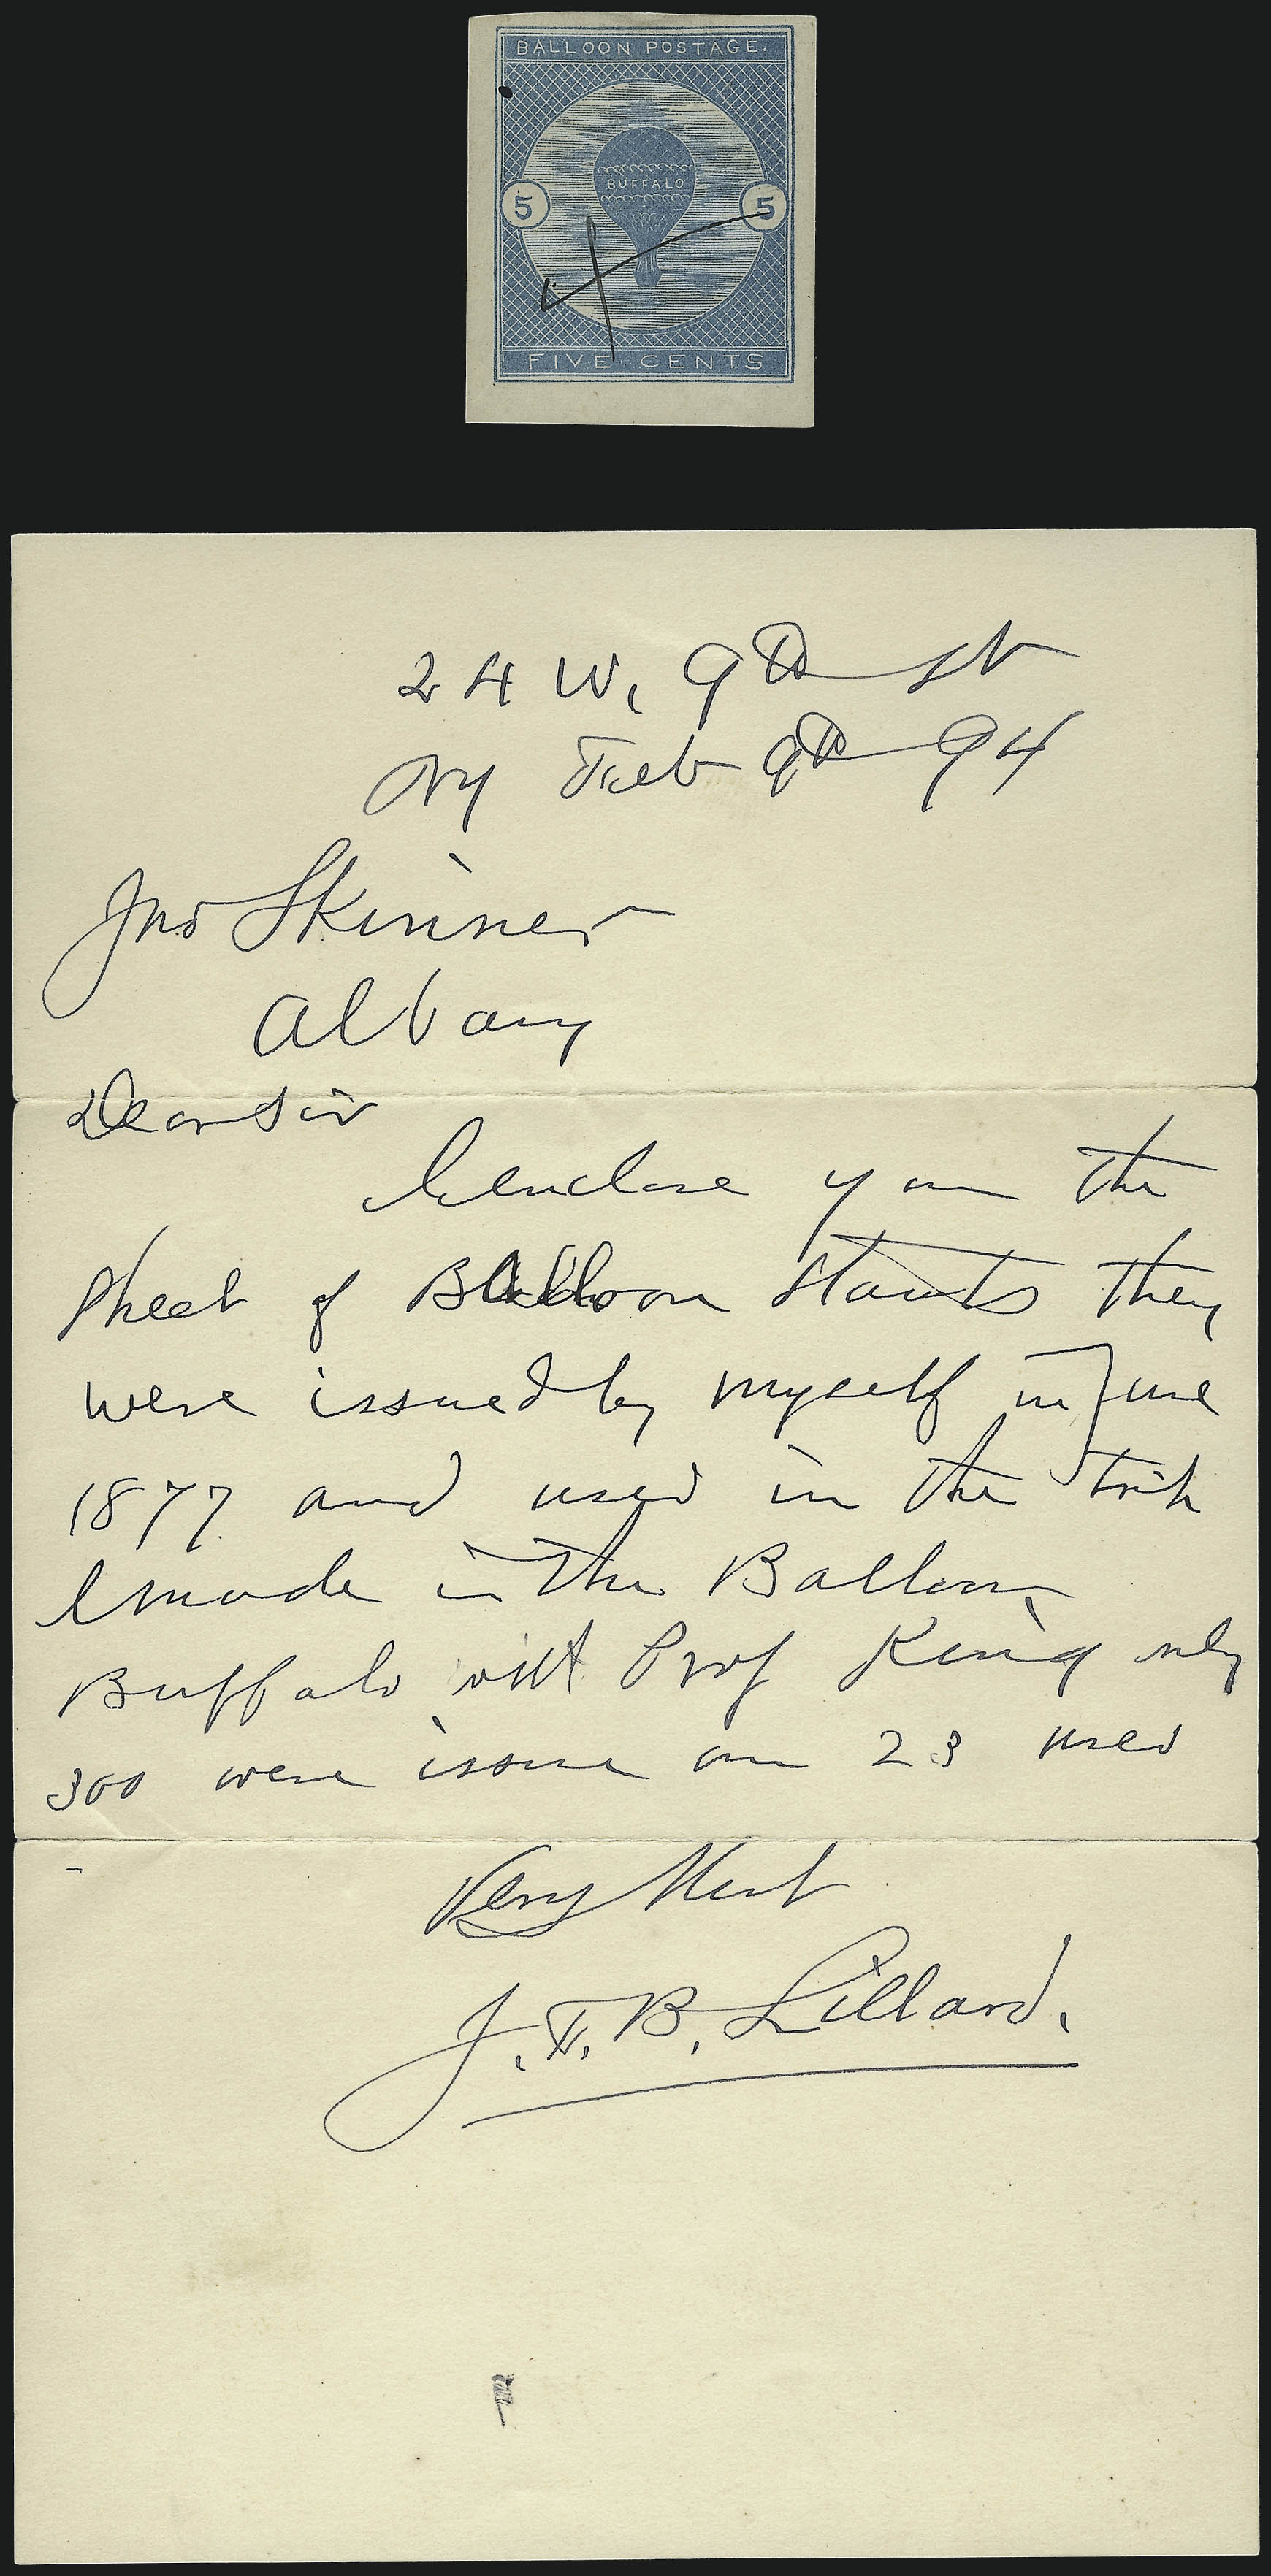 BALLOON POSTAGE.
BUFFALO
5 5
FIVE CENTS
24 W. 9th st
NY Feb 9th 94
Jno Skinner
Albany
Dear Sir
I enclose you the
sheet of Balloon stamps they
were issued by myself in June
1877 and used in the trip
I made in the Balloon
Buffalo with Prof King only
300 were issue 23 used
Very
J. F. B. Lillard.